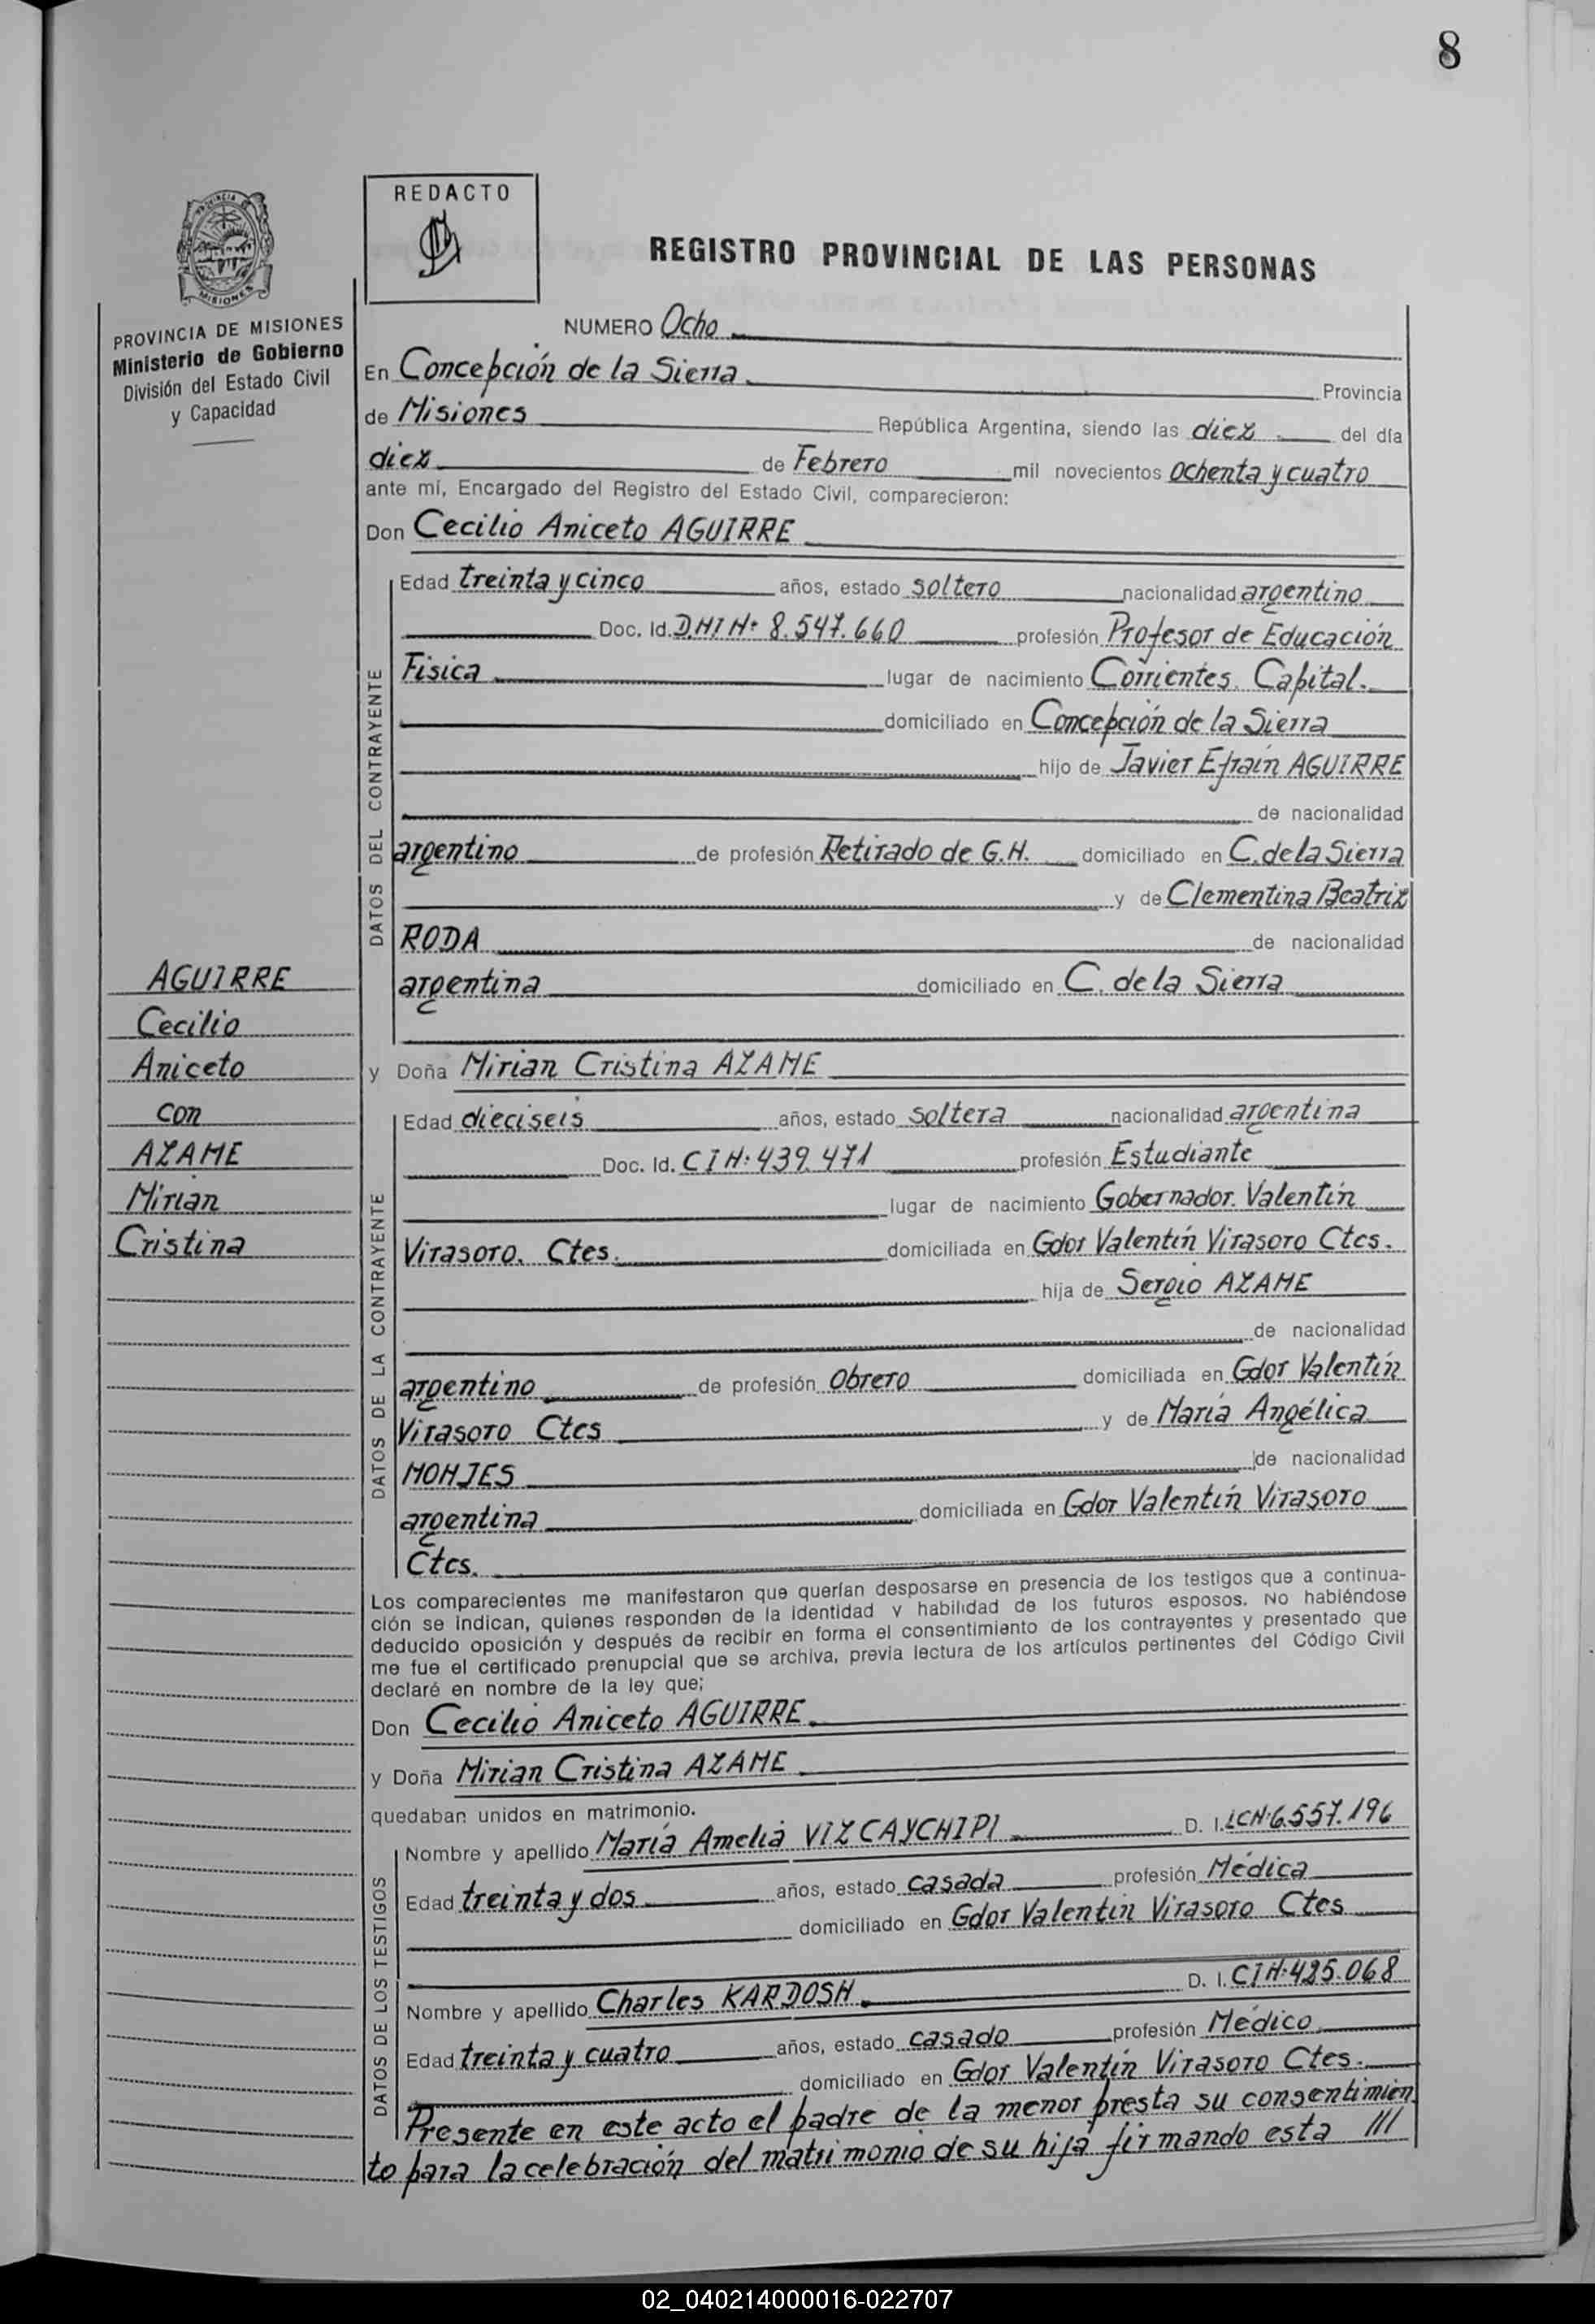 8
REDACTO
REGISTRO PROVINCIAL DE LAS PERSONAS
PROVINCIA DE MISIONES
Ministerio de Gobierno
División del Estado Civil
y Capacidad
NUMERO Ocho
En Concepción de la Sierra Provincia
de Misiones República Argentina, siendo las diez del día
diez de Febrero mil novecientos ochenta y cuatro
ante mí, Encargado del Registro del Estado Civil, comparecieron:
Don Cecilio Aniceto AGUIRRE
DATOS DEL CONTRAYENTE
Edad treinta y cinco años, estado soltero nacionalidad argentino
Doc. Id. DNI Nº 8.547.660 profesión Profesor de Educación
Física lugar de nacimiento Corrientes. Capital.
domiciliado en Concepción de la Sierra
hijo de Javier Efraín AGUIRRE
de nacionalidad
argentino de profesión Retirado de G.N. domiciliado en C. de la Sierra
y de Clementina Beatriz
RODA de nacionalidad
argentina domiciliado en C. de la Sierra
AGUIRRE
Cecilio
Aniceto
con
AZAME
Mirian
Cristina
y Doña Mirian Cristina AZAME
DATOS DE LA CONTRAYENTE
Edad dieciseis años, estado soltera nacionalidad argentina
Doc. Id. CI Nº 439.471 profesión Estudiante
lugar de nacimiento Gobernador. Valentín
Virasoro. Ctes. domiciliada en Gdor Valentín Virasoro Ctes.
hija de Sergio AZAME
de nacionalidad
argentino de profesión Obrero domiciliada en Gdor Valentín
Virasoro Ctes y de María Angélica
MONJES de nacionalidad
argentina domiciliada en Gdor Valentín Virasoro
Ctes.
Los comparecientes me manifestaron que querían desposarse en presencia de los testigos que a continua-
ción se indican, quienes responden de la identidad y habilidad de los futuros esposos. No habiéndose
deducido oposición y después de recibir en forma el consentimiento de los contrayentes y presentado que
me fue el certificado prenupcial que se archiva, previa lectura de los artículos pertinentes del Código Civil
declaré en nombre de la ley que;
Don Cecilio Aniceto AGUIRRE.
y Doña Mirian Cristina AZAME
quedaban unidos en matrimonio.
DATOS DE LOS TESTIGOS
Nombre y apellido María Amelia VIZCAYCHIPI D. I. LC Nº 6.557.196
Edad treinta y dos años, estado casada profesión Médica
domiciliado en Gdor Valentín Virasoro Ctes
Nombre y apellido Charles KARDOSH. D. I. CI Nº 425.068
Edad treinta y cuatro años, estado casado profesión Médico
domiciliado en Gdor Valentín Virasoro Ctes.
Presente en este acto el padre de la menor presta su consentimien
to para la celebración del matrimonio de su hija firmando esta ///
02_040214000016-022707